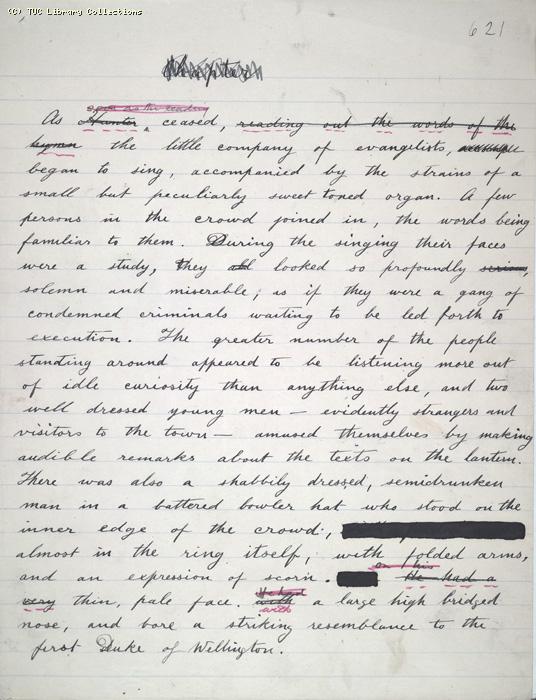 (C) TUC Library Collections
621
soon as the reading
As Hunter ceased, reading out the words of the
hymn the little company of evangelists,
began to sing, accompanied by the strains of a
small but peculiarly sweet toned organ. A few
persons in the crowd joined in, the words being
familiar to them. During the singing their faces
were a study, they all looked so profoundly serious,
solemn and miserable; as if they were a gang of
condemned criminals waiting to be led forth to
execution. The greater number of the people
standing around appeared to be listening more out
of idle curiosity than anything else, and two
well dressed young men — evidently strangers and
visitors to the town — amused themselves by making
audible remarks about the texts on the lantern.
There was also a shabbily dressed, semidrunken
man in a battered bowler hat who stood on the
inner edge of the crowd,
almost in the ring itself, with folded arms,
on his
and an expression of scorn. He had a
He had
very thin, pale face. with a large high bridged
with
nose, and bore a striking resemblance to the
first Duke of Wellington.